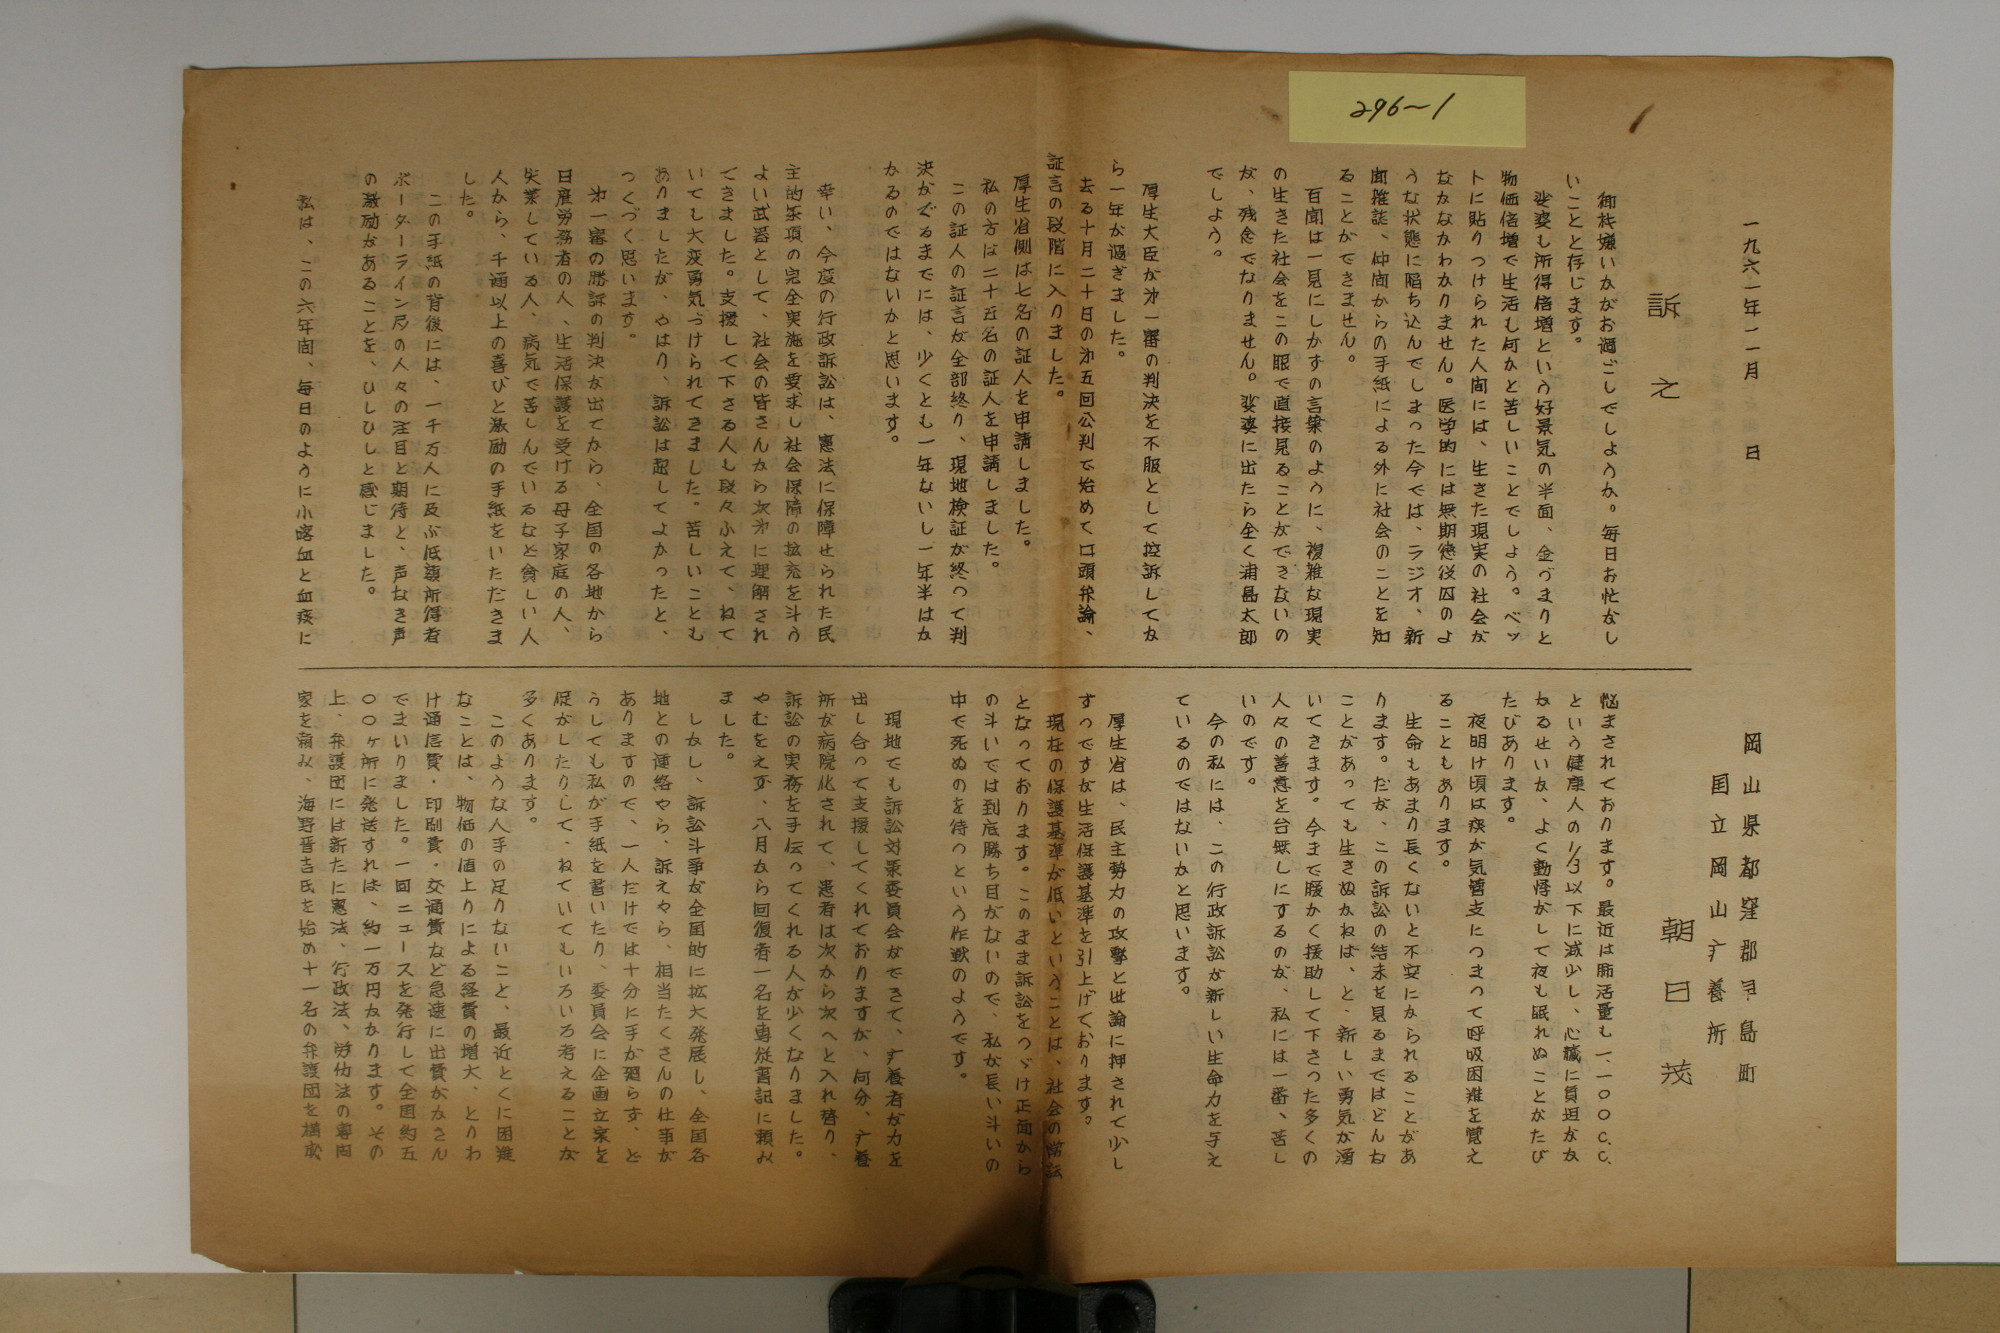 296〜1
一九六一年一一月　　日
訴之
御机嫌いかがお過ごしでしようか。毎日お忙なし
いことと存じます。
娑婆も所得倍増という好景気の半面、金づまりと
物価倍増で生活も何かと苦しいことでしよう。ベッ
トに貼りつけられた人間には、生きた現実の社会が
なかなかわかりません。医学的には無期懲役囚のよ
うな状態に陥ち込んでしまった今では、ラジオ、新
聞雑誌、仲间からの手紙による外に社会のことを知
ることができません。
百聞は一見にしかずの言葉のように、複雑な現実
の生きた社会をこの眼で直接見ることができないの
が、残念でなりません。娑婆に出たら全く浦島太郎
でしよう。
厚生大臣が㐧一審の判決を不服として控訴してか
ら一年が過ぎました。
去る十月二十日の㐧五回公判で始めて口頭弁論、
証言の段階に入りました。
厚生省側は七名の証人を申請しました。
私の方は二十五名の証人を申請しました。
この証人の証言が全部終り、現地検証が終って判
決がくるまでには、少くとも一年ないし一年半はか
かるのではないかと思います。
幸い、今度の行政訴訟は、憲法に保障せられた民
主的条項の完全実施を要求し社会保障の拡充を斗う
よい武器として、社会の皆さんから次㐧に理解され
てきました。支援して下さる人も段々ふえて、ねて
いても大変勇気づけられてきました。苦しいことも
ありましたが、やはり、訴訟は起してよかったと、
つくづく思います。
㐧一審の勝訴の判決が出てから、全国の各地から
日雇労務者の人、生活保護を受ける母子家庭の人、
失業している人、病気で苦しんでいるなど貧しい人
人から、千通以上の喜びと激励の手紙をいただきま
した。
この手紙の背後には、一千万人に及ぶ低額所得者
ボーターライン层の人々の注目と期待と、声なき声
の激励があることを、ひしひしと感じました。
私は、この六年间、毎日のように小喀血と血痰に
岡山県都窪郡早島町
国立岡山疒養所
朝日茂
悩まされております。最近は肺活量も一、一〇〇C.C.
という健康人の1/3以下に減少し、心臓に負担がか
かるせいか、よく動悸がして夜も眠れぬことがたび
たびあります。
夜明け頃は痰が気管支につまって呼吸困難を覚え
ることもあります。
生命もあまり長くないと不安にかられることがあ
ります。だが、この訴訟の結末を見るまではどんな
ことがあっても生きぬかねば、と、新しい勇気が湧
いてきます。今まで暖かく援助して下さった多くの
人々の善意を台無しにするのが、私には一番、苦し
いのです。
今の私には、この行政訴訟が新しい生命力を与え
ているのではないかと思います。
厚生省は、民主勢力の攻撃と世論に押されて少し
ずつですが生活保護基準を引上げております。
現在の保護基準が低いということは、社会の常識
となっております。このまま訴訟をつづけ正面から
の斗いでは到底勝ち目がないので、私が長い斗いの
中で死ぬのを待つという作戦のようです。
現地でも訴訟対策委員会ができて、疒養者が力を
出し合って支援してくれておりますが、何分、疒養
所が病院化されて、患者は次から次へと入れ替り、
訴訟の実務を手伝ってくれる人が少くなりました。
やむをえず、八月から回復者一名を専従書記に頼み
ました。
しかし、訴訟斗争が全国的に拡大発展し、全国各
地との連絡やら、訴えやら、相当たくさんの仕事が
ありますので、一人だけでは十分に手が廻らず、ど
うしても私が手紙を書いたり、委員会に企画立案を
促がしたりして、ねていてもいろいろ考えることが
多くあります。
このような人手の足りないこと、最近とくに困難
なことは、物価の値上りによる経費の増大、とりわ
け通信費・印刷費・交通費など急速に出費がかさん
でまいりました。一回ニュースを発行して全国約五
〇〇ヶ所に発送すれば、約一万円かかります。その
上、弁護団には新たに憲法、行政法、労仂法の専門
家を頼み、海野晋吉氏を始め十一名の弁護団を構成